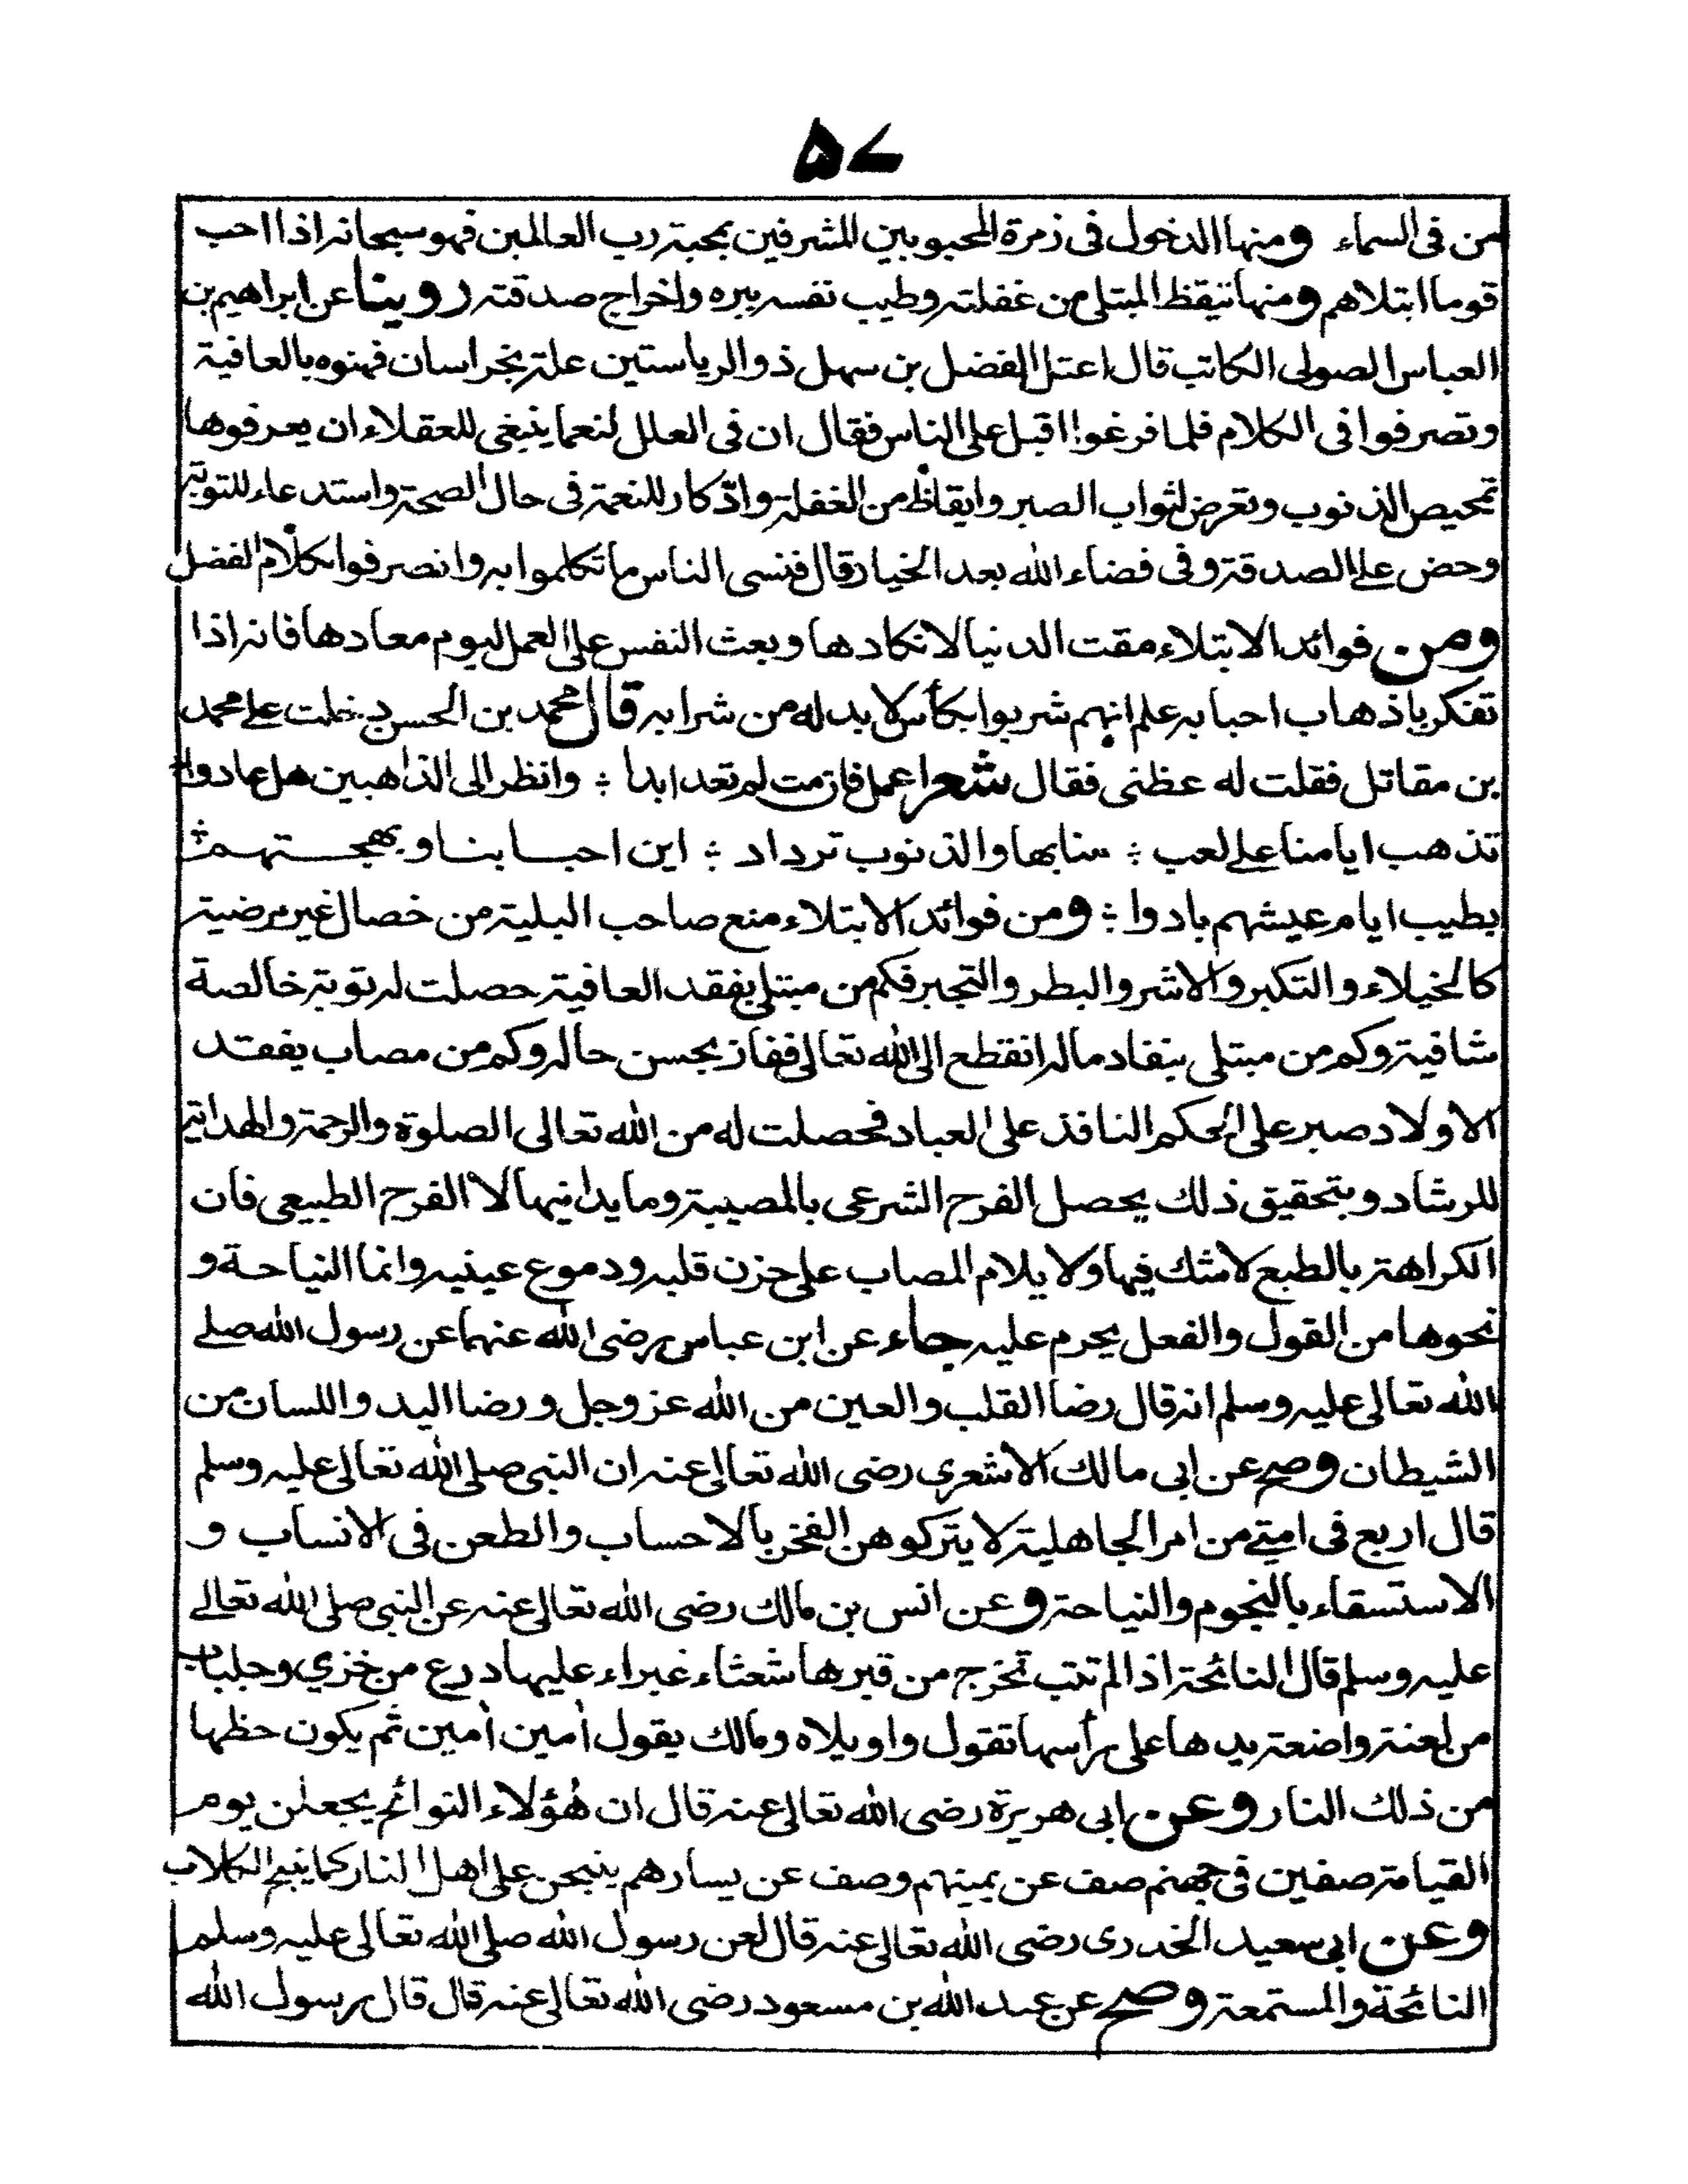 ۵۷
من فى السماء ومنها الدخول فى زمرة المحبوبين المشرفين بمحبة رب العالمين فهو سبحانه اذا احب
قوما ابتلاهم ومنها تيقظ المبتلى من غفلته وطيب نفسه ببره واخراج صدقته روينا عن ابراهيم بن
العباس الصولى الكاتب قال اعتل الفضل بن سهل ذو الرياستين علة بخراسان فهنوه بالعافية
وتصرفوا فى الكلام فلما فرغوا اقبل على الناس فقال ان فى العلل لنعما ينبغى للعقلاء ان يعرفوها
تمحيص الذنوب وتعرض لثواب الصبر وايقاظ من الغفلة واذكار للنعمة فى حال الصحة واستدعاء للتوبة
وحض على الصدقة وفى قضاء الله بعد الخيار قال فنسى الناس ما تكلموا به وانصرفوا بكلام الفضل
ومن فوائد الابتلاء مقت الدنيا لانكادها وبعث النفس على العمل ليوم معادها فانه اذا
تفكر باذهاب احبابه علم انهم شربوا بكأس لا بد له من شرابه قال محمد بن الحسن دخلت على محمد
بن مقاتل فقلت له عظنى فقال شعرا عمل فان مت لم تعد ابدا ؛ وانظر الى الذاهبين هل عادوا ؛
تذهب ايامنا على لعب ؛ منا بها والذنوب ترداد ؛ اين احبابنا وبهجتهم ؛
بطيب ايام عيشهم بادوا ؛ ومن فوائد الابتلاء منع صاحب البلية من خصال غير مرضية
كالخيلاء والتكبر والاشر والبطر والتجبر فكم من مبتلى بفقد العافية حصلت له توبة خالصة
شافية وكم من مبتلى بنفاد ماله انقطع الى الله تعالى ففاز بحسن حاله وكم من مصاب بفقد
الاولاد صبر على الحكم النافذ على العباد فحصلت له من الله تعالى الصلوة والرحمة والهداية
للرشاد وبتحقيق ذلك يحصل الفرح الشرعى بالمصيبة وما يدانيها لا الفرح الطبيعى فان
الكراهة بالطبع لا شك فيها ولا يلام المصاب على حزن قلبه ودموع عينيه وانما النياحة و
نحوها من القول والفعل يحرم عليه جاء عن ابن عباس رضى الله عنهما عن رسول الله صلے
الله تعالى عليه وسلم انه قال رضا القلب والعين من الله عز وجل ورضا اليد واللسان من
الشيطان وصح عن ابى مالك الاشعرى رضى الله تعالى عنه ان النبى صلى الله تعالى عليه وسلم
قال اربع فى امتے من امر الجاهلية لا يتركوهن الفخر بالاحساب والطعن فى الانساب و
الاستسقاء بالنجوم والنياحة وعن انس بن مالك رضى الله تعالى عنه عن النبى صلى الله تعالے
عليه وسلم قال النائحة اذا لم تتب تخرج من قبرها شعثاء غبراء عليها درع من خزي وجلباب
من لعنة واضعة يدها على رأسها تقول واويلاه ومالك يقول أمين أمين ثم يكون حظها
من ذلك النار وعن ابى هريرة رضى الله تعالى عنه قال ان هؤلاء النوائح يجعلن يوم
القيامة صفين فى جهنم صف عن يمينهم وصف عن يسارهم ينبحن على اهل النار كما ينبح الكلاب
وعن ابى سعيد الخدرى رضى الله تعالى عنه قال لعن رسول الله صلى الله تعالى عليه وسلم
النائحة والمستمعة وصح عن عبد الله بن مسعود رضى الله تعالى عنه قال قال رسول الله